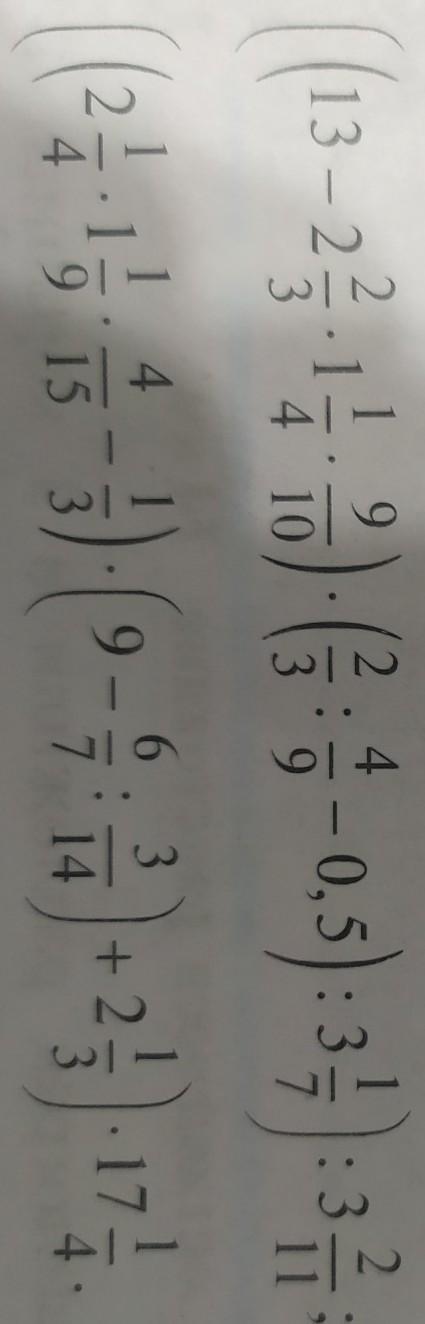 ((13 − 2 2/3 · 1 1/4 · 9/10) · (2/3 : 4/9 − 0,5) : 3 1/7) : 3 2/11;
((2 1/4 · 1 1/9 · 4/15 − 1/3) · (9 − 6/7 : 3/14) + 2 1/3) · 17 1/4.